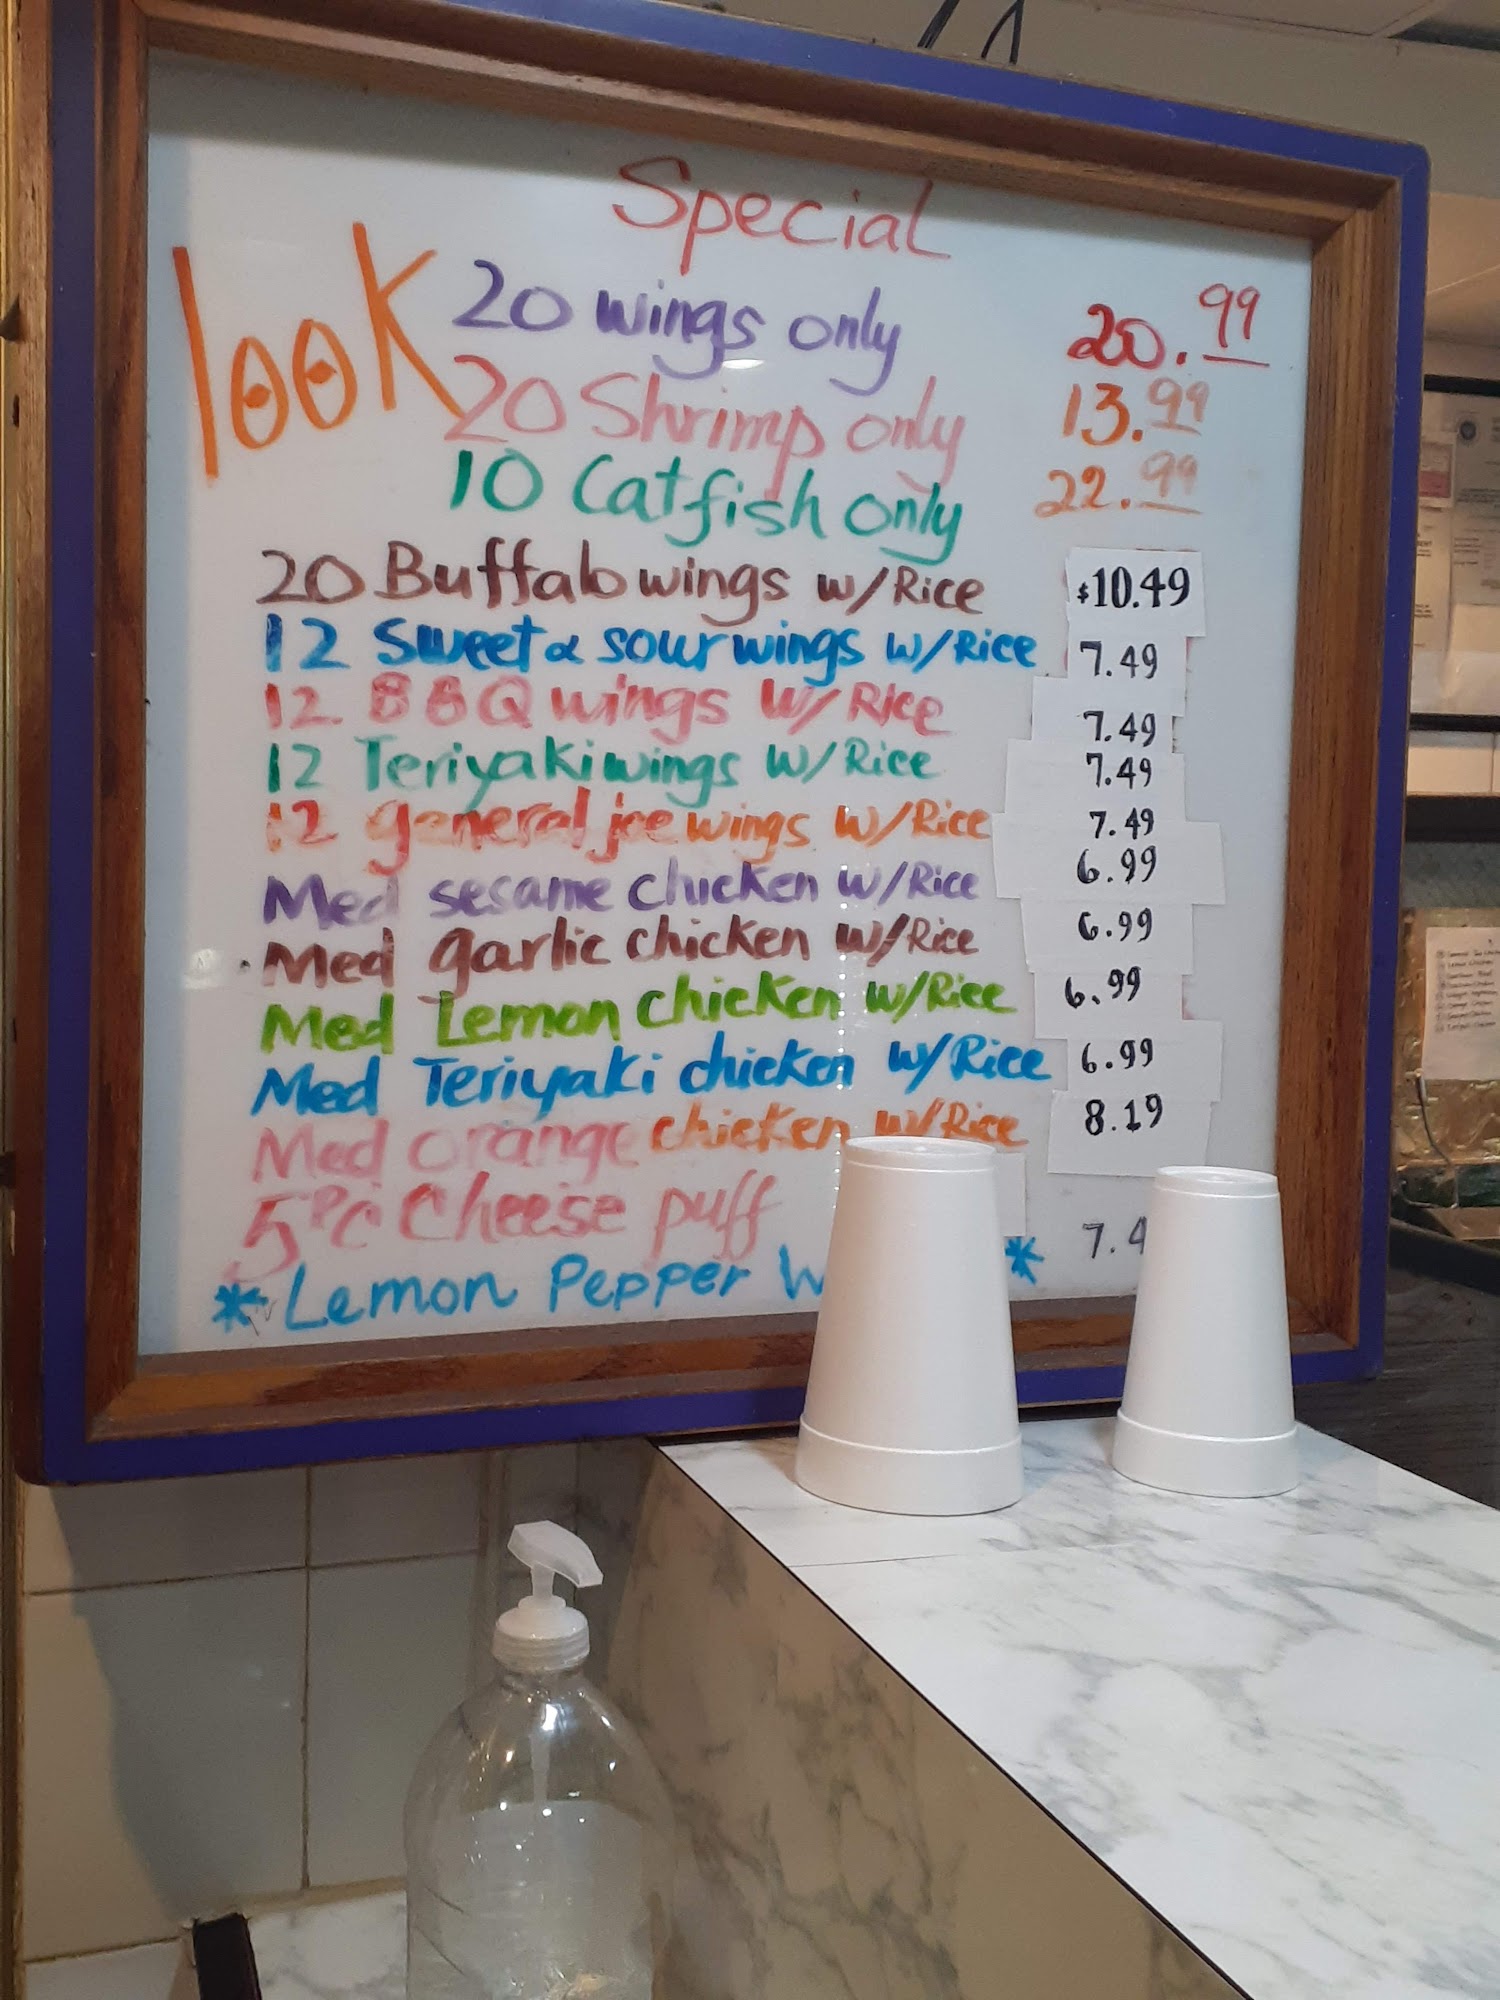 Special
look
20 wings only 20.99
20 Shrimp only 13.99
10 Catfish only 22.99
20 Buffalo wings w/Rice $10.49
12 Sweet & sour wings w/Rice 7.49
12 BBQ wings w/Rice 7.49
12 Teriyaki wings w/Rice 7.49
12 general joe wings w/Rice 7.49
Med sesame chicken w/Rice 6.99
Med garlic chicken w/Rice 6.99
Med Lemon chicken w/Rice 6.99
Med Teriyaki chicken w/Rice 6.99
Med orange chicken w/Rice 8.19
5PC Cheese puff
* Lemon Pepper W * 7.4